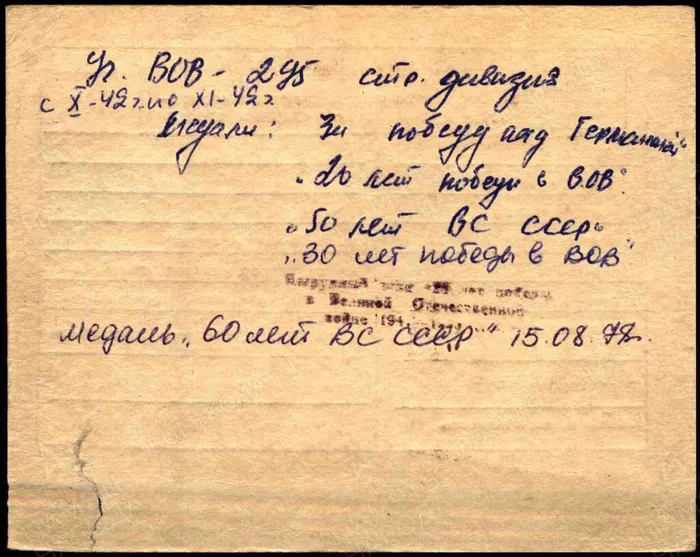 Уч. ВОВ - 295 стр. дивизия
с X-42г. по XI-42г.
Медали: За победу над Германией"
"20 лет победы в ВОВ"
"50 лет ВС СССР"
"30 лет победы в ВОВ"
Нагрудный знак «25 лет победы
в Великой Отечественной
войне 194
медаль „60 лет ВС СССР" 15.08.78г.